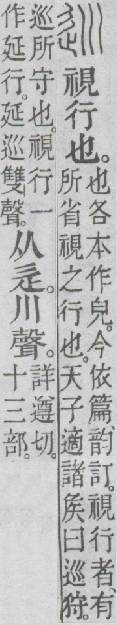 巡 視行也。
也各本作皃。今依篇韵訂。視行者、有
所省視之行也。天子適諸矦曰巡狩。
巡所守也。視行一
作延行。延巡雙聲。
从辵。川聲。
詳遵切。
十三部。